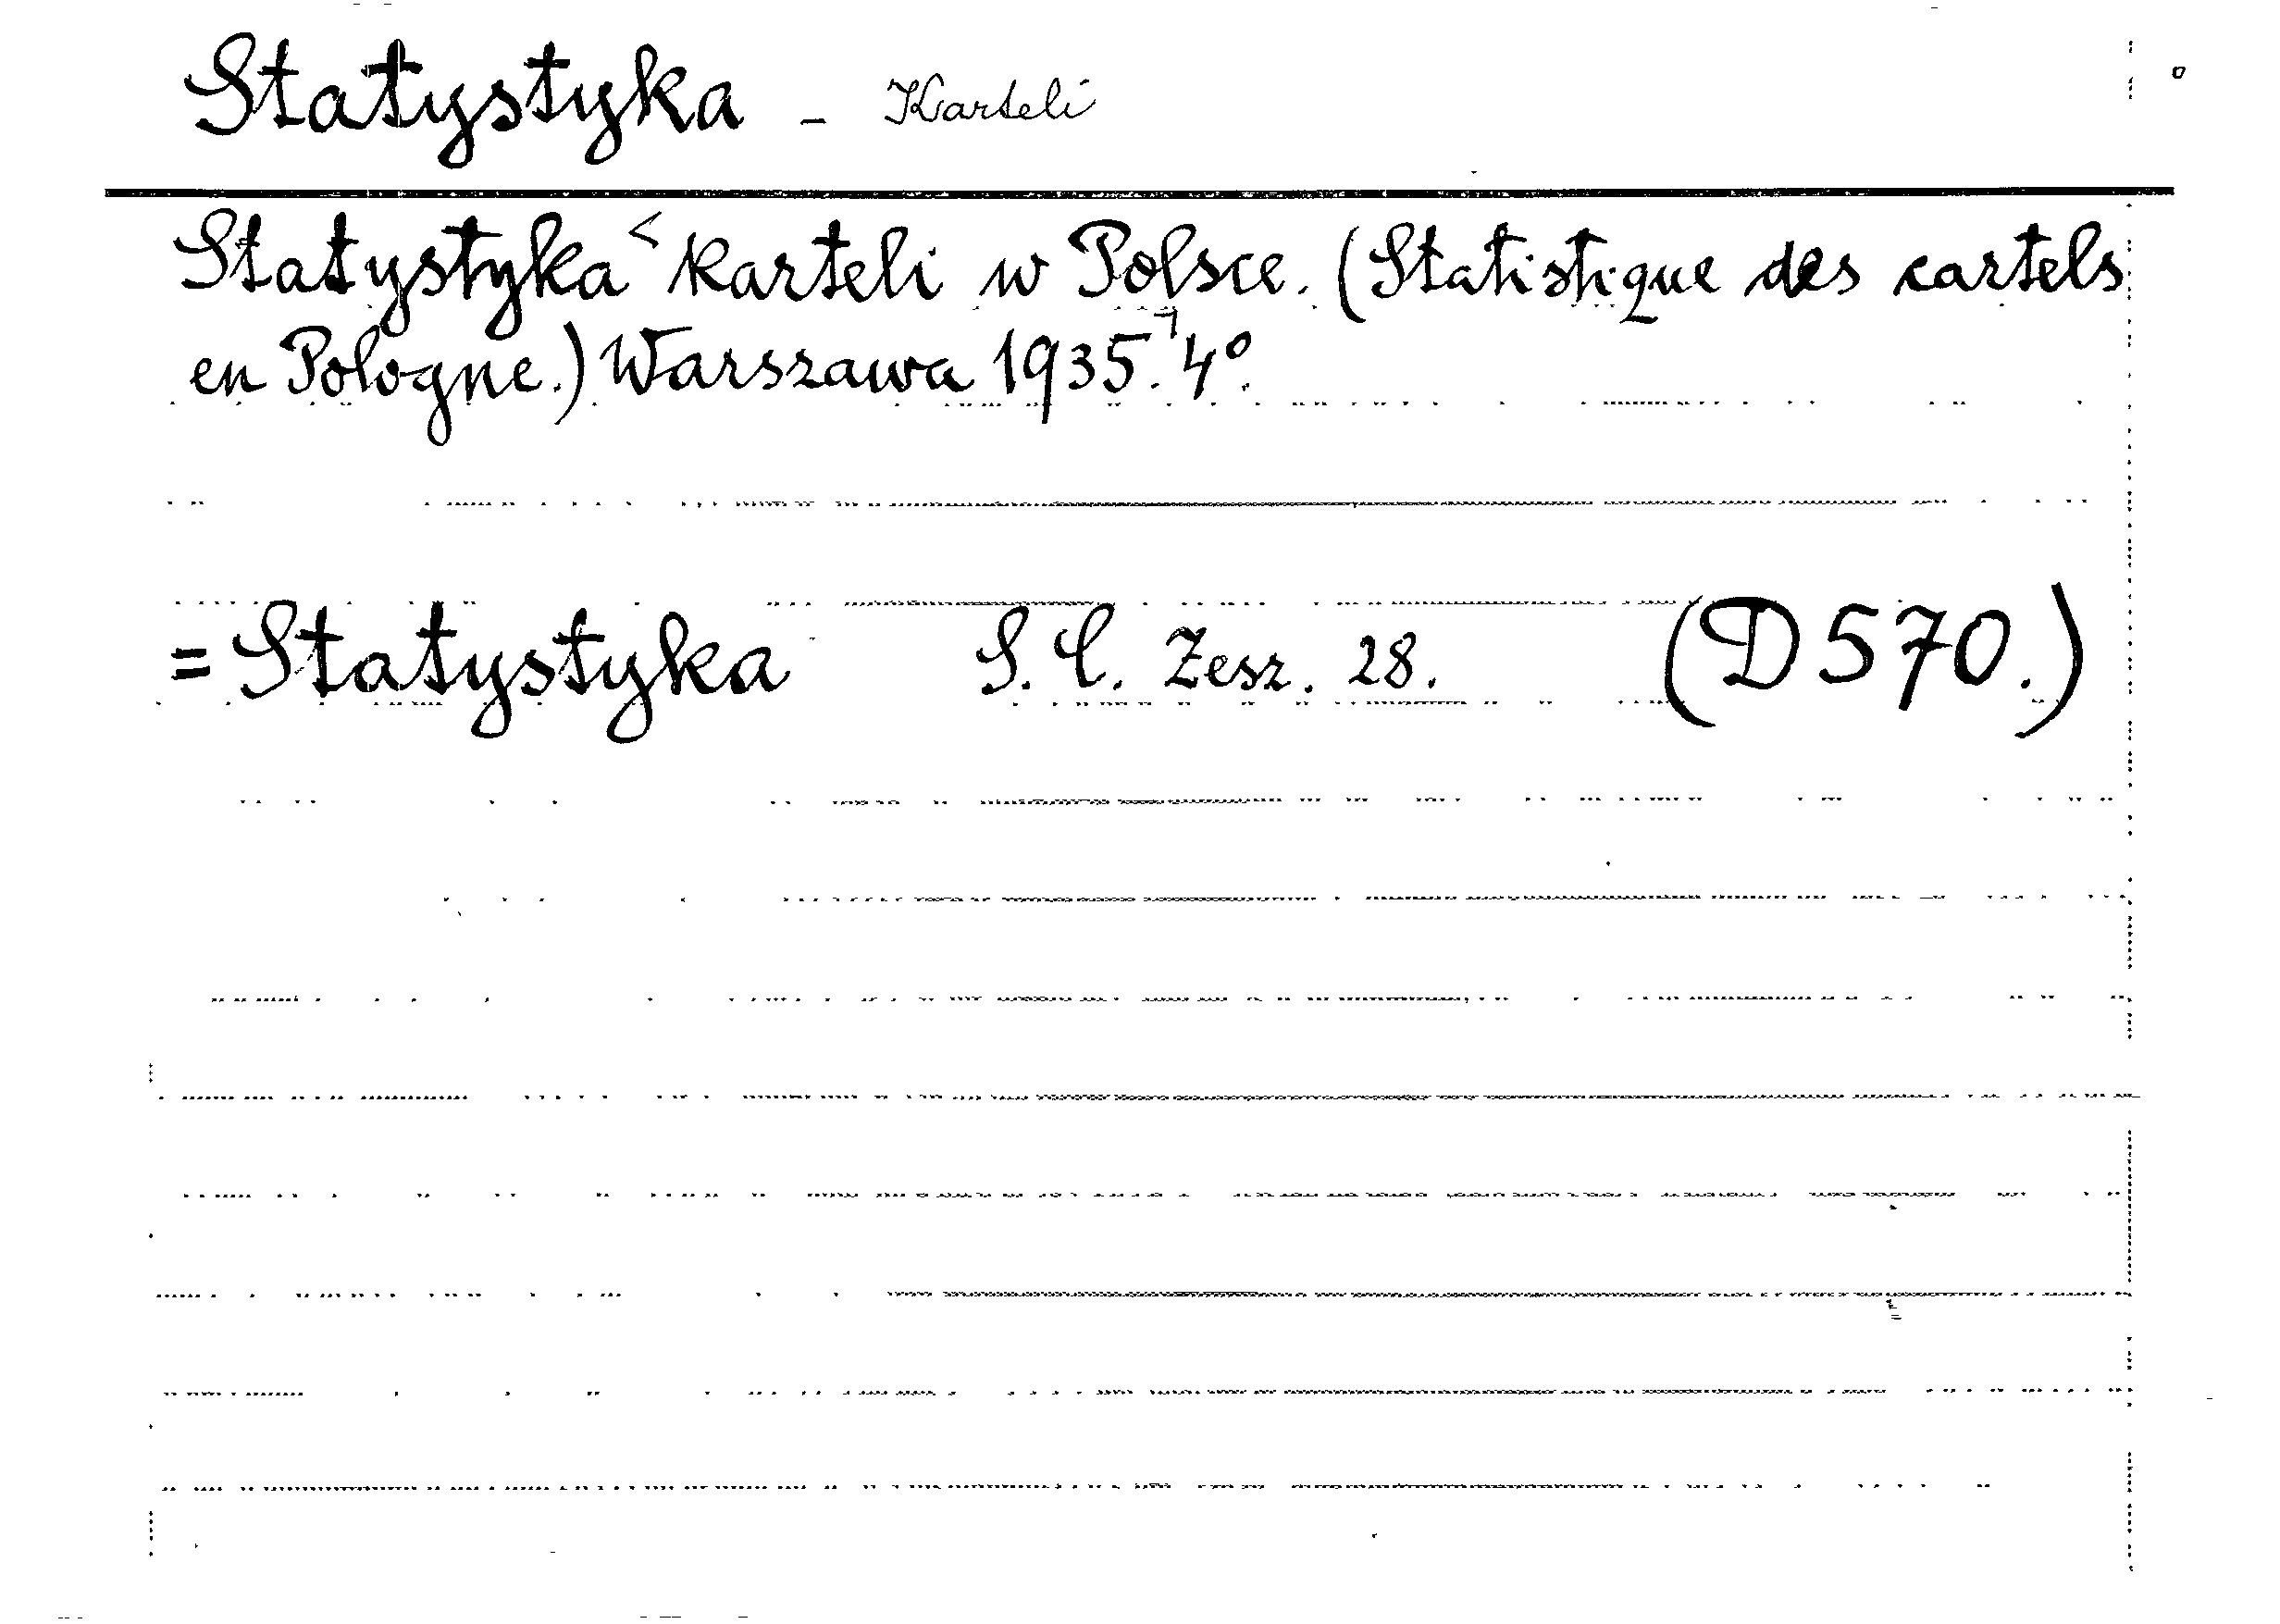 Statystyka - Karteli
Statystyka < karteli w Polsce. (Statistique des cartels
en Pologne.) Warszawa 1935. ¬ 4º.
= Statystyka S. C. Zesz. 28. (D 570.)